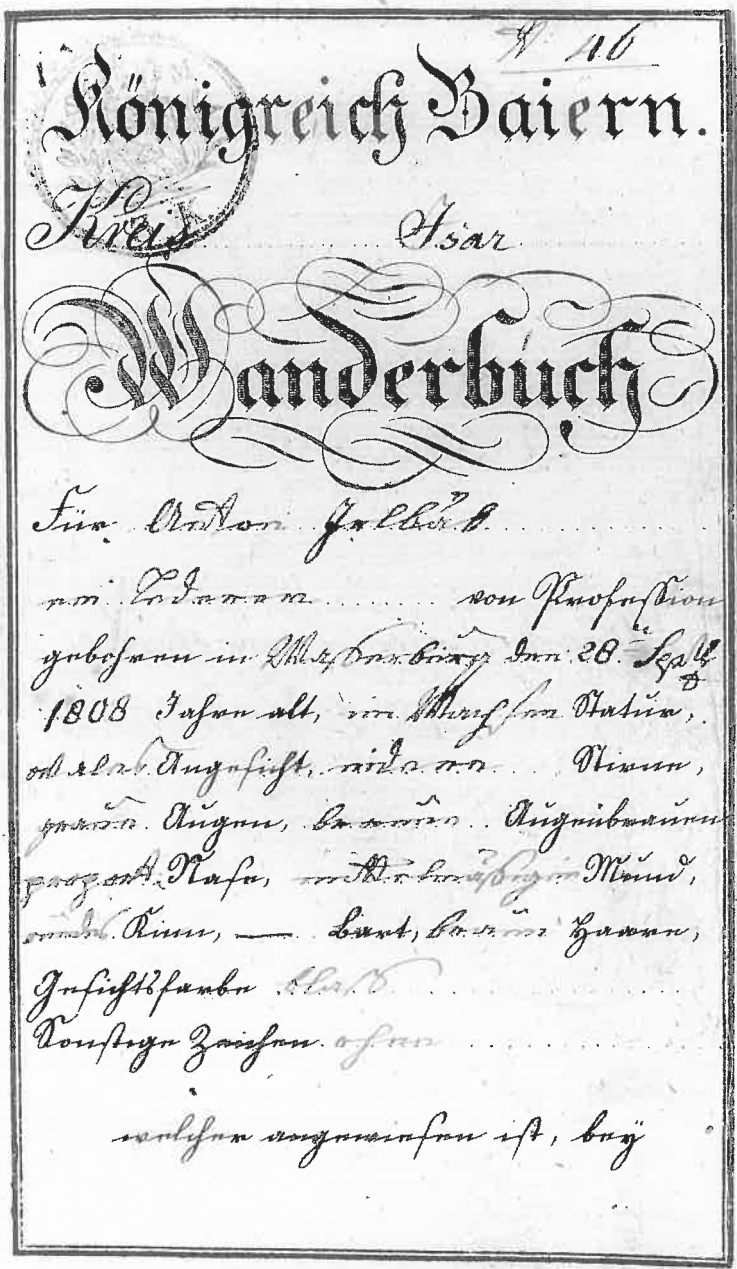 N. 46
Königreich Baiern.
Kreis Isar
Wanderbuch
Für Anton
ein Lederer von Profession
gebohren in Wasserburg den 28. Sept
1808 Jahre alt, im Wachsen Statur,
ovales Angesicht, niedere Stirne,
graue Augen, braune Augenbrauen
proport. Nase, mittelmäßigen Mund,
rundes Kinn, — Bart, braune Haare,
Gesichtsfarbe blaß
Sonstige Zeichen ohne
welcher angewiesen ist, bey